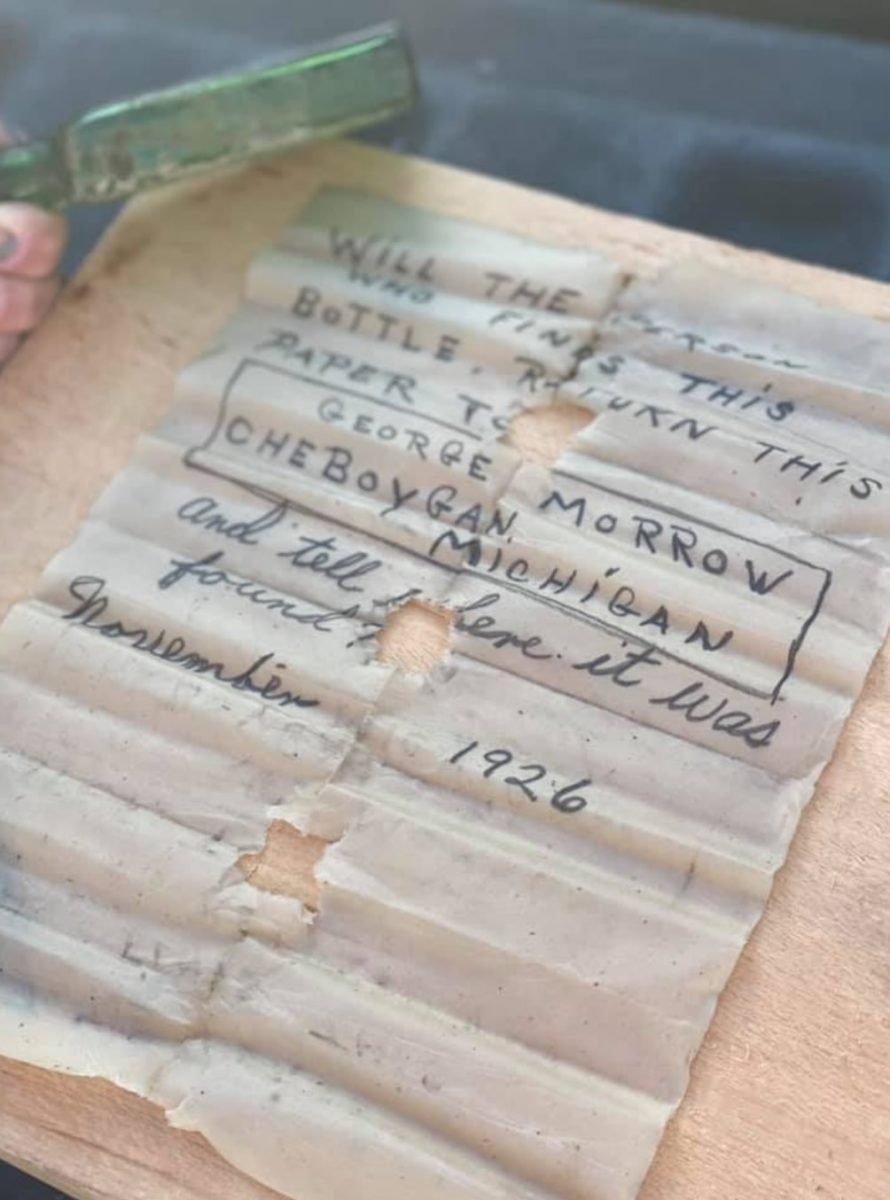 WiLL THE PERSON
WHO FINDS THiS
BOTTLE. RETURN THiS
PAPER TO
GEORGE MORROW
CHEBOYGAN,
MiCHiGAN
and tell where it was
found?
November
1926